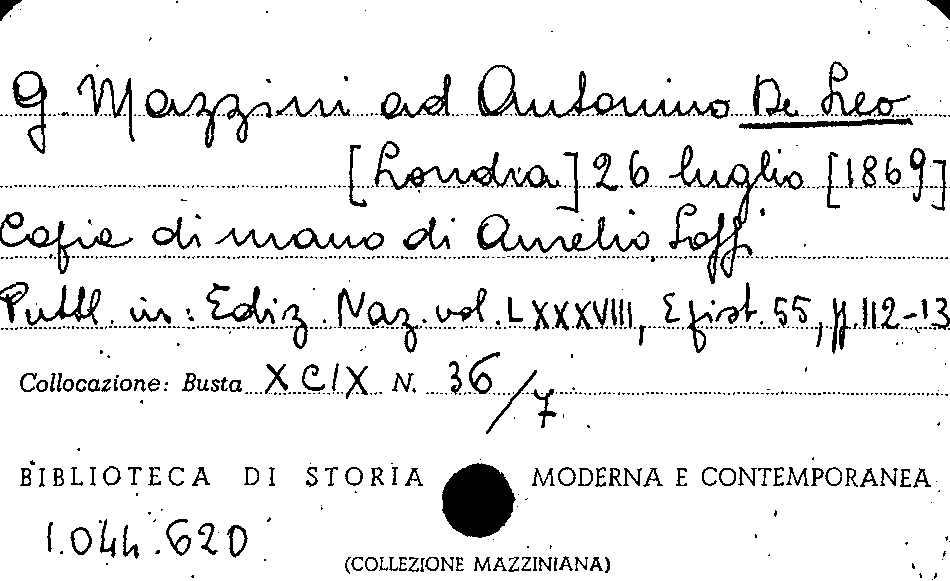 G. Mazzini ad Antonino De Leo
[Londra] 26 luglio [1869]
Copia di mano di Aurelio Saffi
Pubbl. in: Ediz. Naz. vol. LXXXVIII, Epist. 55, pp. 112-13
Collocazione: Busta XCIX N. 36/7
BIBLIOTECA DI STORIA MODERNA E CONTEMPORANEA
1.044.620
(COLLEZIONE MAZZINIANA)